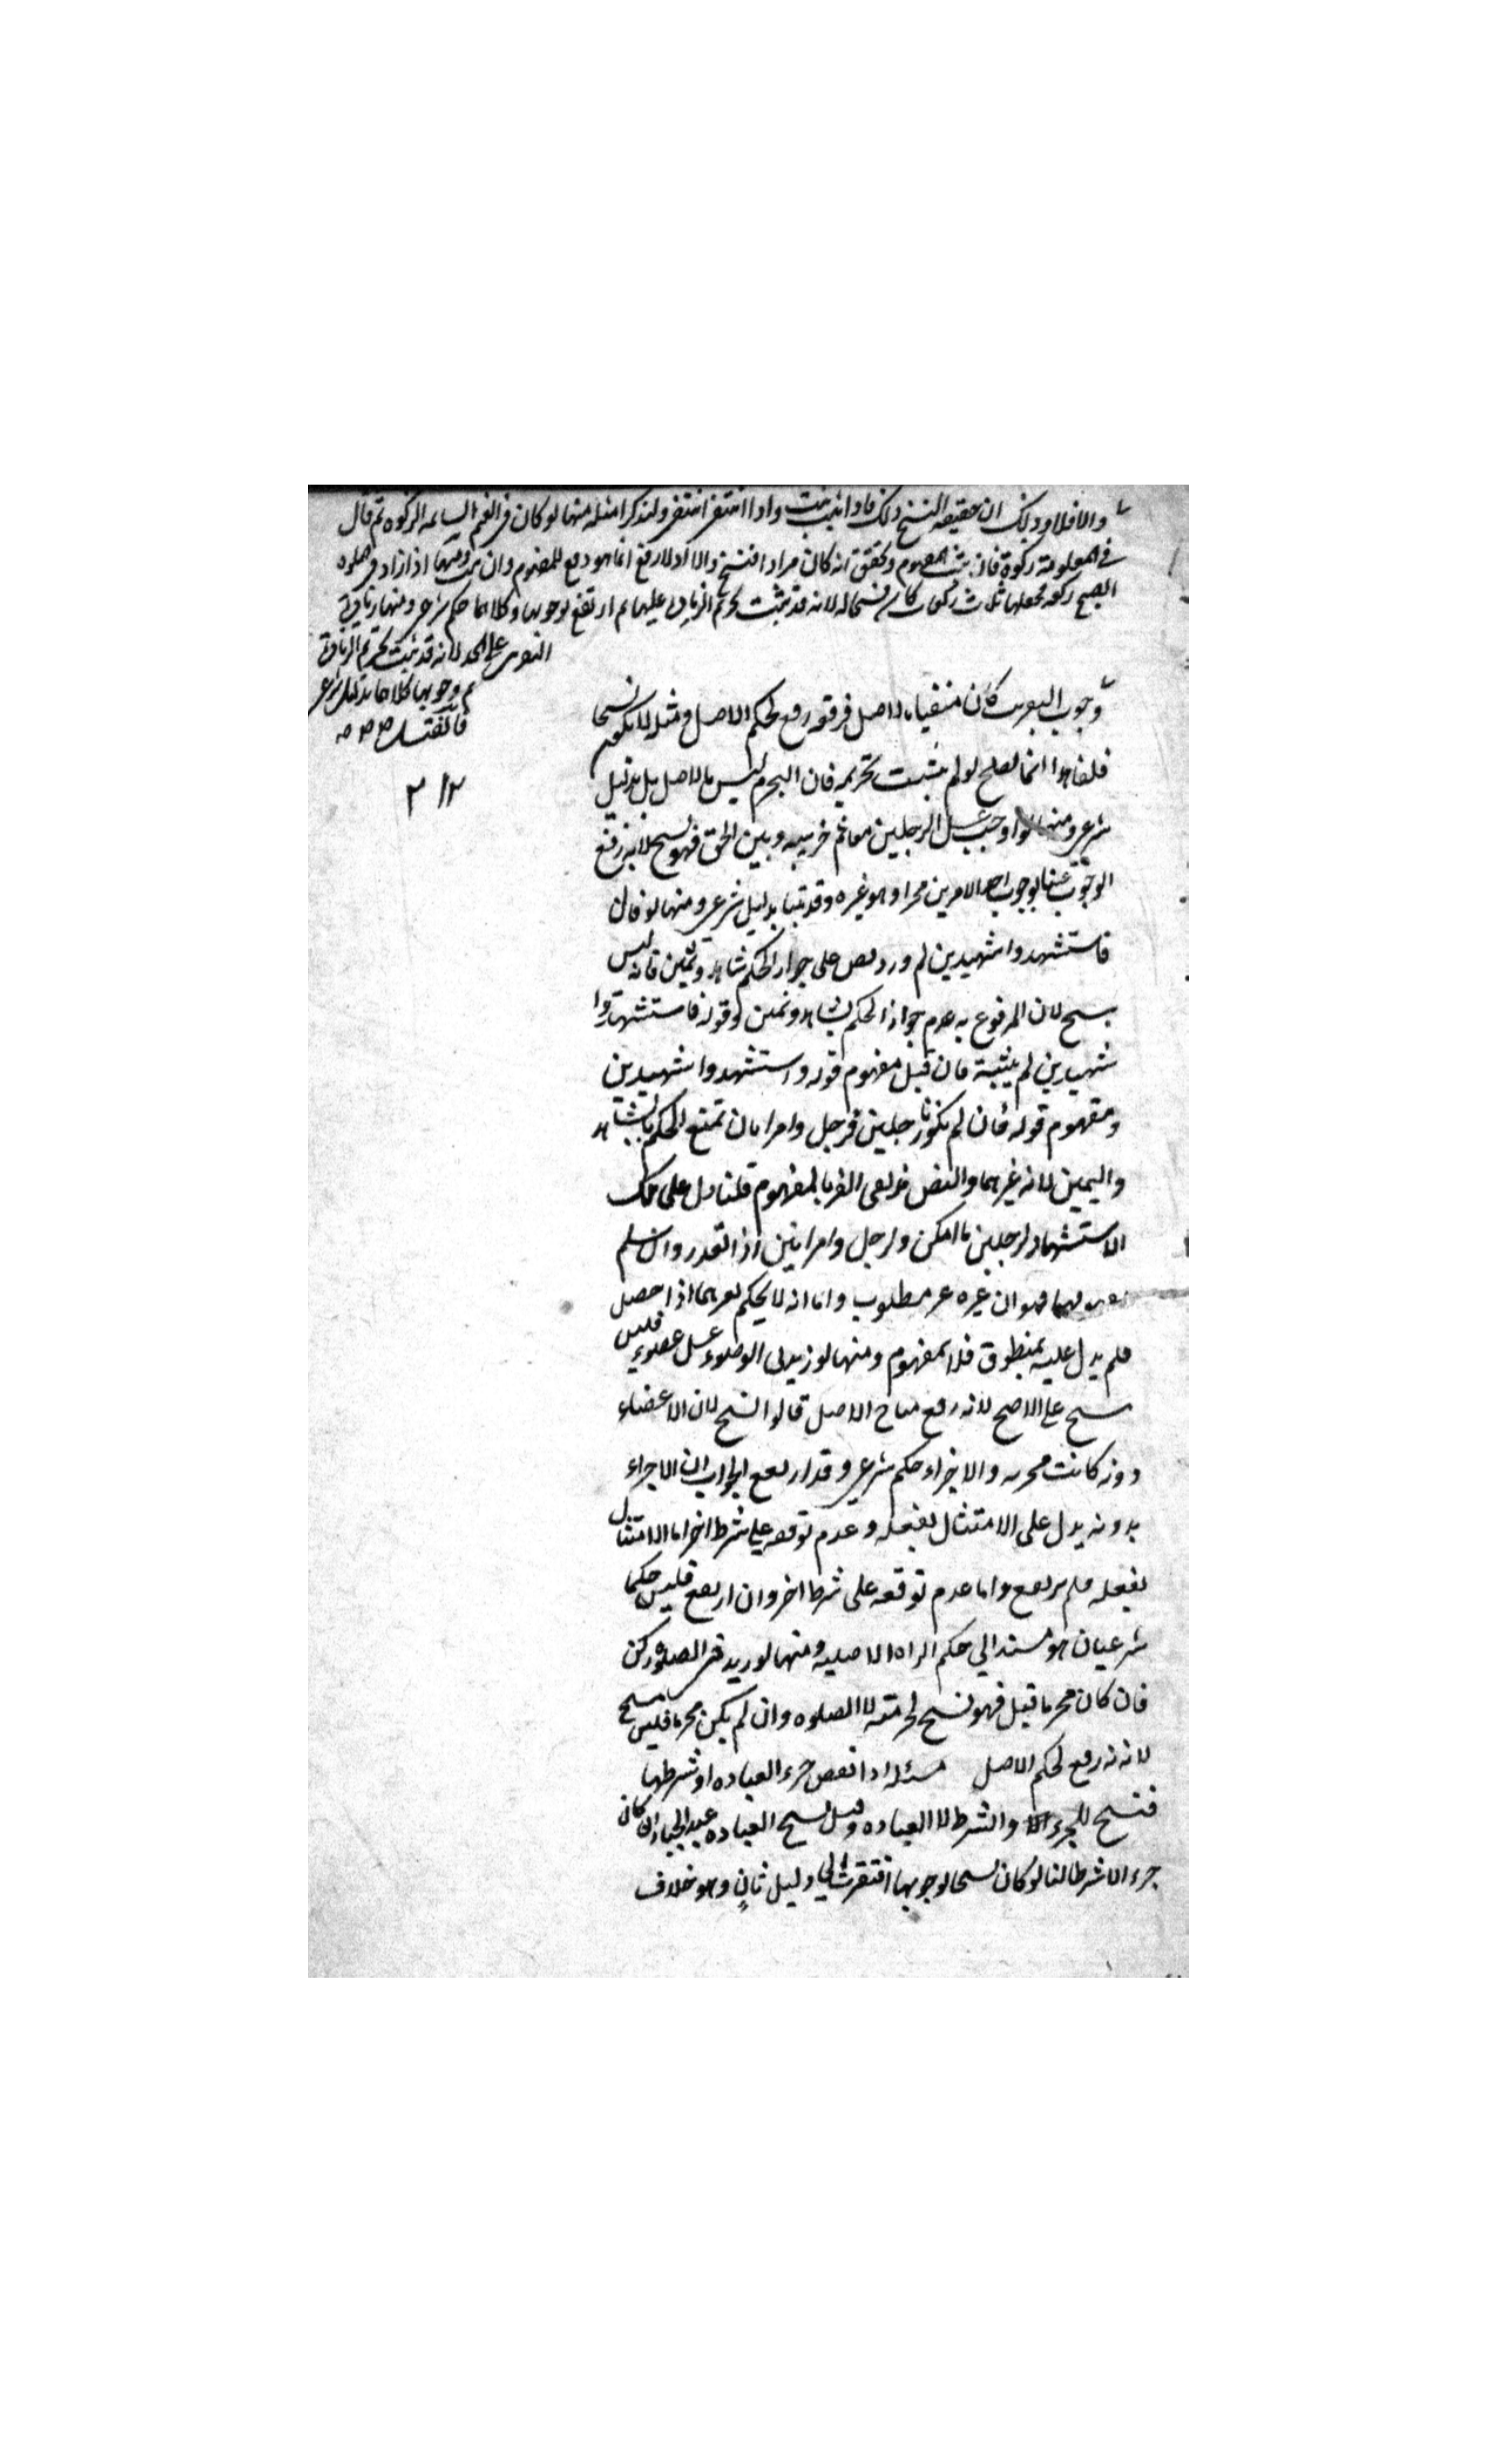 والا فلا وذلك ان حقيقه النسخ ذلك فاذا ثبت ثبت واذا انتفى انتفى ولنذكر امثله منها لو كان فى الغنم السايمه الزكوة ثم قال
فى المعلوفة زكوة فان ثبت المفهوم وتحقق انه كان مرادا فنسخ والا فلا اذ لا رفع انما هو دفع للمفهوم وان ثبت ومنها اذا زاد فى صلوه
الصبح ركعه فجعلها ثلاث ركعات كان نسخا له لانه قد ثبت تحريم الزيادة عليهما ثم ارتفع بوجوبها وكلاهما حكم شرعى ومنها زيادة
التغريب على الحد لانه قد ثبت تحريم الزيادة
ثم وجوبها وكلاهما بدليل شرعى
فان قلت
٢/٢
وجوب التغريب كان منفيا بالاصل فرفعه رفع لحكم الاصل ومثله لا يكون نسخا
قلنا هذا انما يصلح لو لم يثبت تحريمه فان التحريم ليس بالاصل بل بدليل
شرعى ومنها لو اوجب غسل الرجلين معا ثم خير بينه وبين الخف فهو نسخ لانه رفع
الوجوب عينا بوجوب احد الامرين مخيرا وهو غيره وقد ثبتا بدليل شرعى ومنها لو قال
فاستشهدوا شهيدين ثم ورد نص على جواز الحكم بشاهد ويمين فانه ليس
بنسخ لان المرفوع به عدم جواز الحكم بشاهد ويمين وقوله فاستشهدوا
شهيدين لم يثبته فان قيل مفهوم قوله واستشهدوا شهيدين
ومفهوم قوله فان لم يكونا رجلين فرجل وامراتان تمنع الحكم بالشاهد
واليمين لانه غيرهما والنص نفى الغير بالمفهوم قلنا دل على
الاستشهاد لرجلين ما امكن ولرجل وامراتين اذا تعذر وان سلم
فهو ان غيره غير مطلوب واما انه لا يحكم بغيرهما اذا حصل
فلم يدل عليه بمنطوق فلا بمفهوم ومنها لو زيد فى الوضوء غسل عضو فليس
بنسخ على الاصح لانه رفع مباح الاصل قالوا نسخ لان الاعضاء
دونه كانت مجزيه والاجزاء حكم شرعى وقد ارتفع الجواب ان الاجزاء
بدونه يدل على الامتثال بفعله وعدم توقفه على شرط اخر اما الامتثال
بفعله فلم يرتفع واما عدم توقفه على شرط اخر وان ارتفع فليس حكما
شرعيا بل هو مستند الى حكم البراه الاصليه ومنها لو زيد فى الصلوة ركن
فان كان محرما قبل فهو نسخ لحرمته لا الصلوه وان لم يكن محرما فليس بنسخ
لانه رفع لحكم الاصل مسئله اذا نقص جزء العباده او شرطها
فنسخ للجزء والشرط لا العباده وقيل نسخ العباده عبد الجبار ان كان
جزءا لا شرطا لنا لو كان نسخا لوجوبها افتقرت الى دليل ثان وهو خلاف